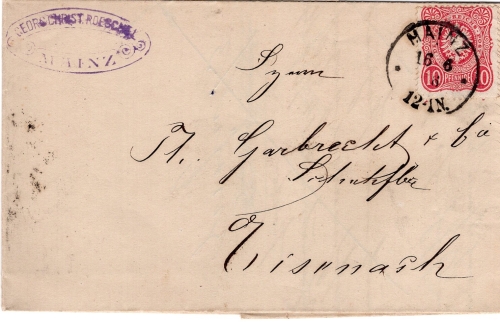 GEORG CHRIST. ROESCHEL
MAINZ
MAINZ
16 6
12-1N.
10 PFENNIG 10
Garbrecht & Co
Eisenach